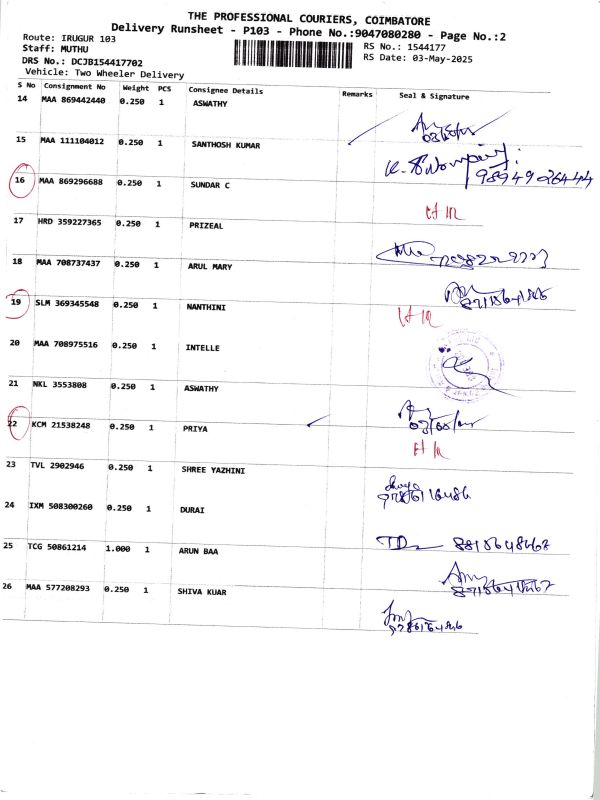 THE PROFESSIONAL COURIERS, COIMBATORE
Delivery Runsheet - P103 - Phone No.:9047080280 - Page No.:2
Route: IRUGUR 103
Staff: MUTHU
RS No.: 1544177
DRS No.: DCJB154417702
RS Date: 03-May-2025
Vehicle: Two Wheeler Delivery
S No Consignment No Weight PCS Consignee Details Remarks Seal & Signature
14 MAA 869442440 0.250 1 ASWATHY
15 MAA 111104012 0.250 1 SANTHOSH KUMAR
9894926444
16 MAA 869296688 0.250 1 SUNDAR C
17 HRD 359227365 0.250 1 PRIZEAL
18 MAA 708737437 0.250 1 ARUL MARY
19 SLM 369345548 0.250 1 NANTHINI
20 MAA 708975516 0.250 1 INTELLE
21 NKL 3553808 0.250 1 ASWATHY
22 KCM 21538248 0.250 1 PRIYA
23 TVL 2902946 0.250 1 SHREE YAZHINI
24 IXM 508300260 0.250 1 DURAI
25 TCG 50861214 1.000 1 ARUN BAA
26 MAA 577208293 0.250 1 SHIVA KUAR